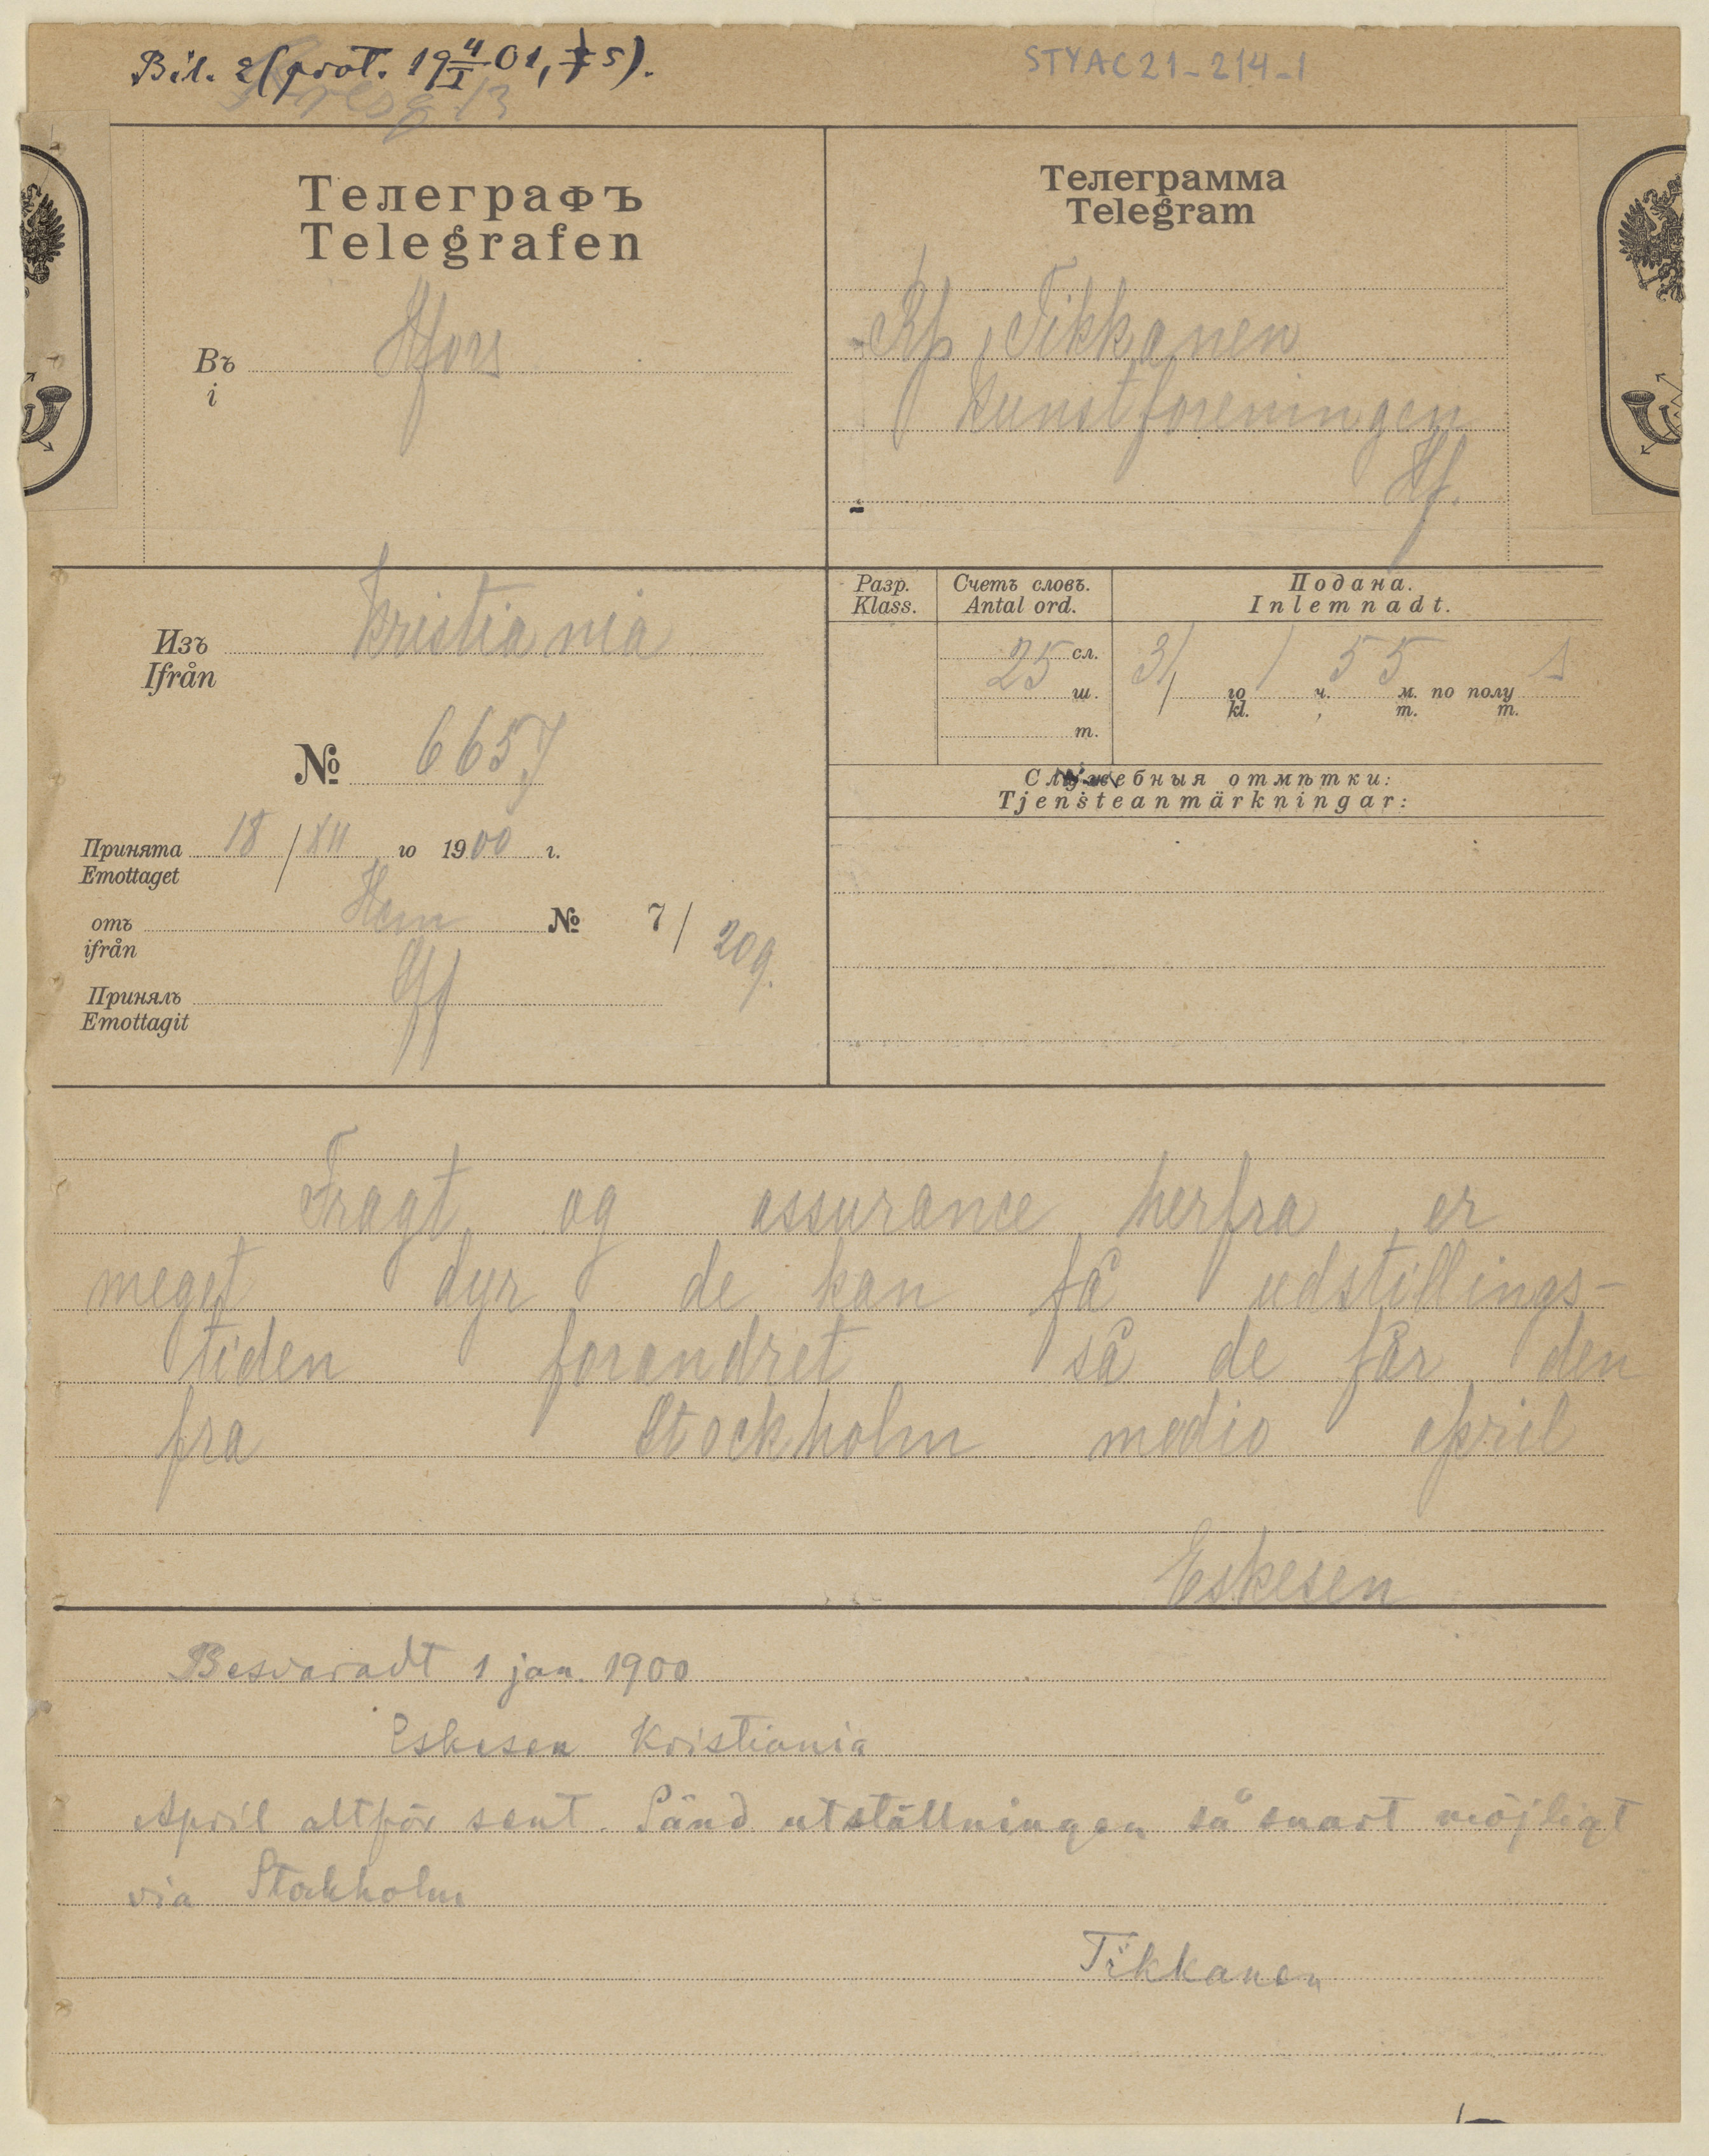 Bil. 2 (prot. 19 4/I 01, § 5).
STYAC21-214-1
Телеграфъ
Telegrafen
Въ
i
Hfors
Телеграмма
Telegram
Rp Tikkanen
Kunstforeningen
Hf.
Изъ
Ifrån
Kristiania
№ 6657
Принята 18/XII 1900 г.
Emottaget
отъ
ifrån
№ 7/ 209.
Принялъ
Emottagit
Разр.
Klass.
Счетъ словъ.
Antal ord.
Подана.
Inlemnadt.
25 сл.
ш.
т.
31/ го 1 ч. 55 м. по полу
kl. , m. m.
Служебныя отмѣтки:
Tjensteanmärkningar:
Fragt og assurance herfra er
meget dyr de kan få udstillings-
tiden forandret så de får den
fra Stockholm medio april
Eskesen
Besvaradt 1 jan. 1900
Eskesen Kristiania
April altför sent. Sänd utställningen så snart möjligt
via Stockholm
Tikkanen